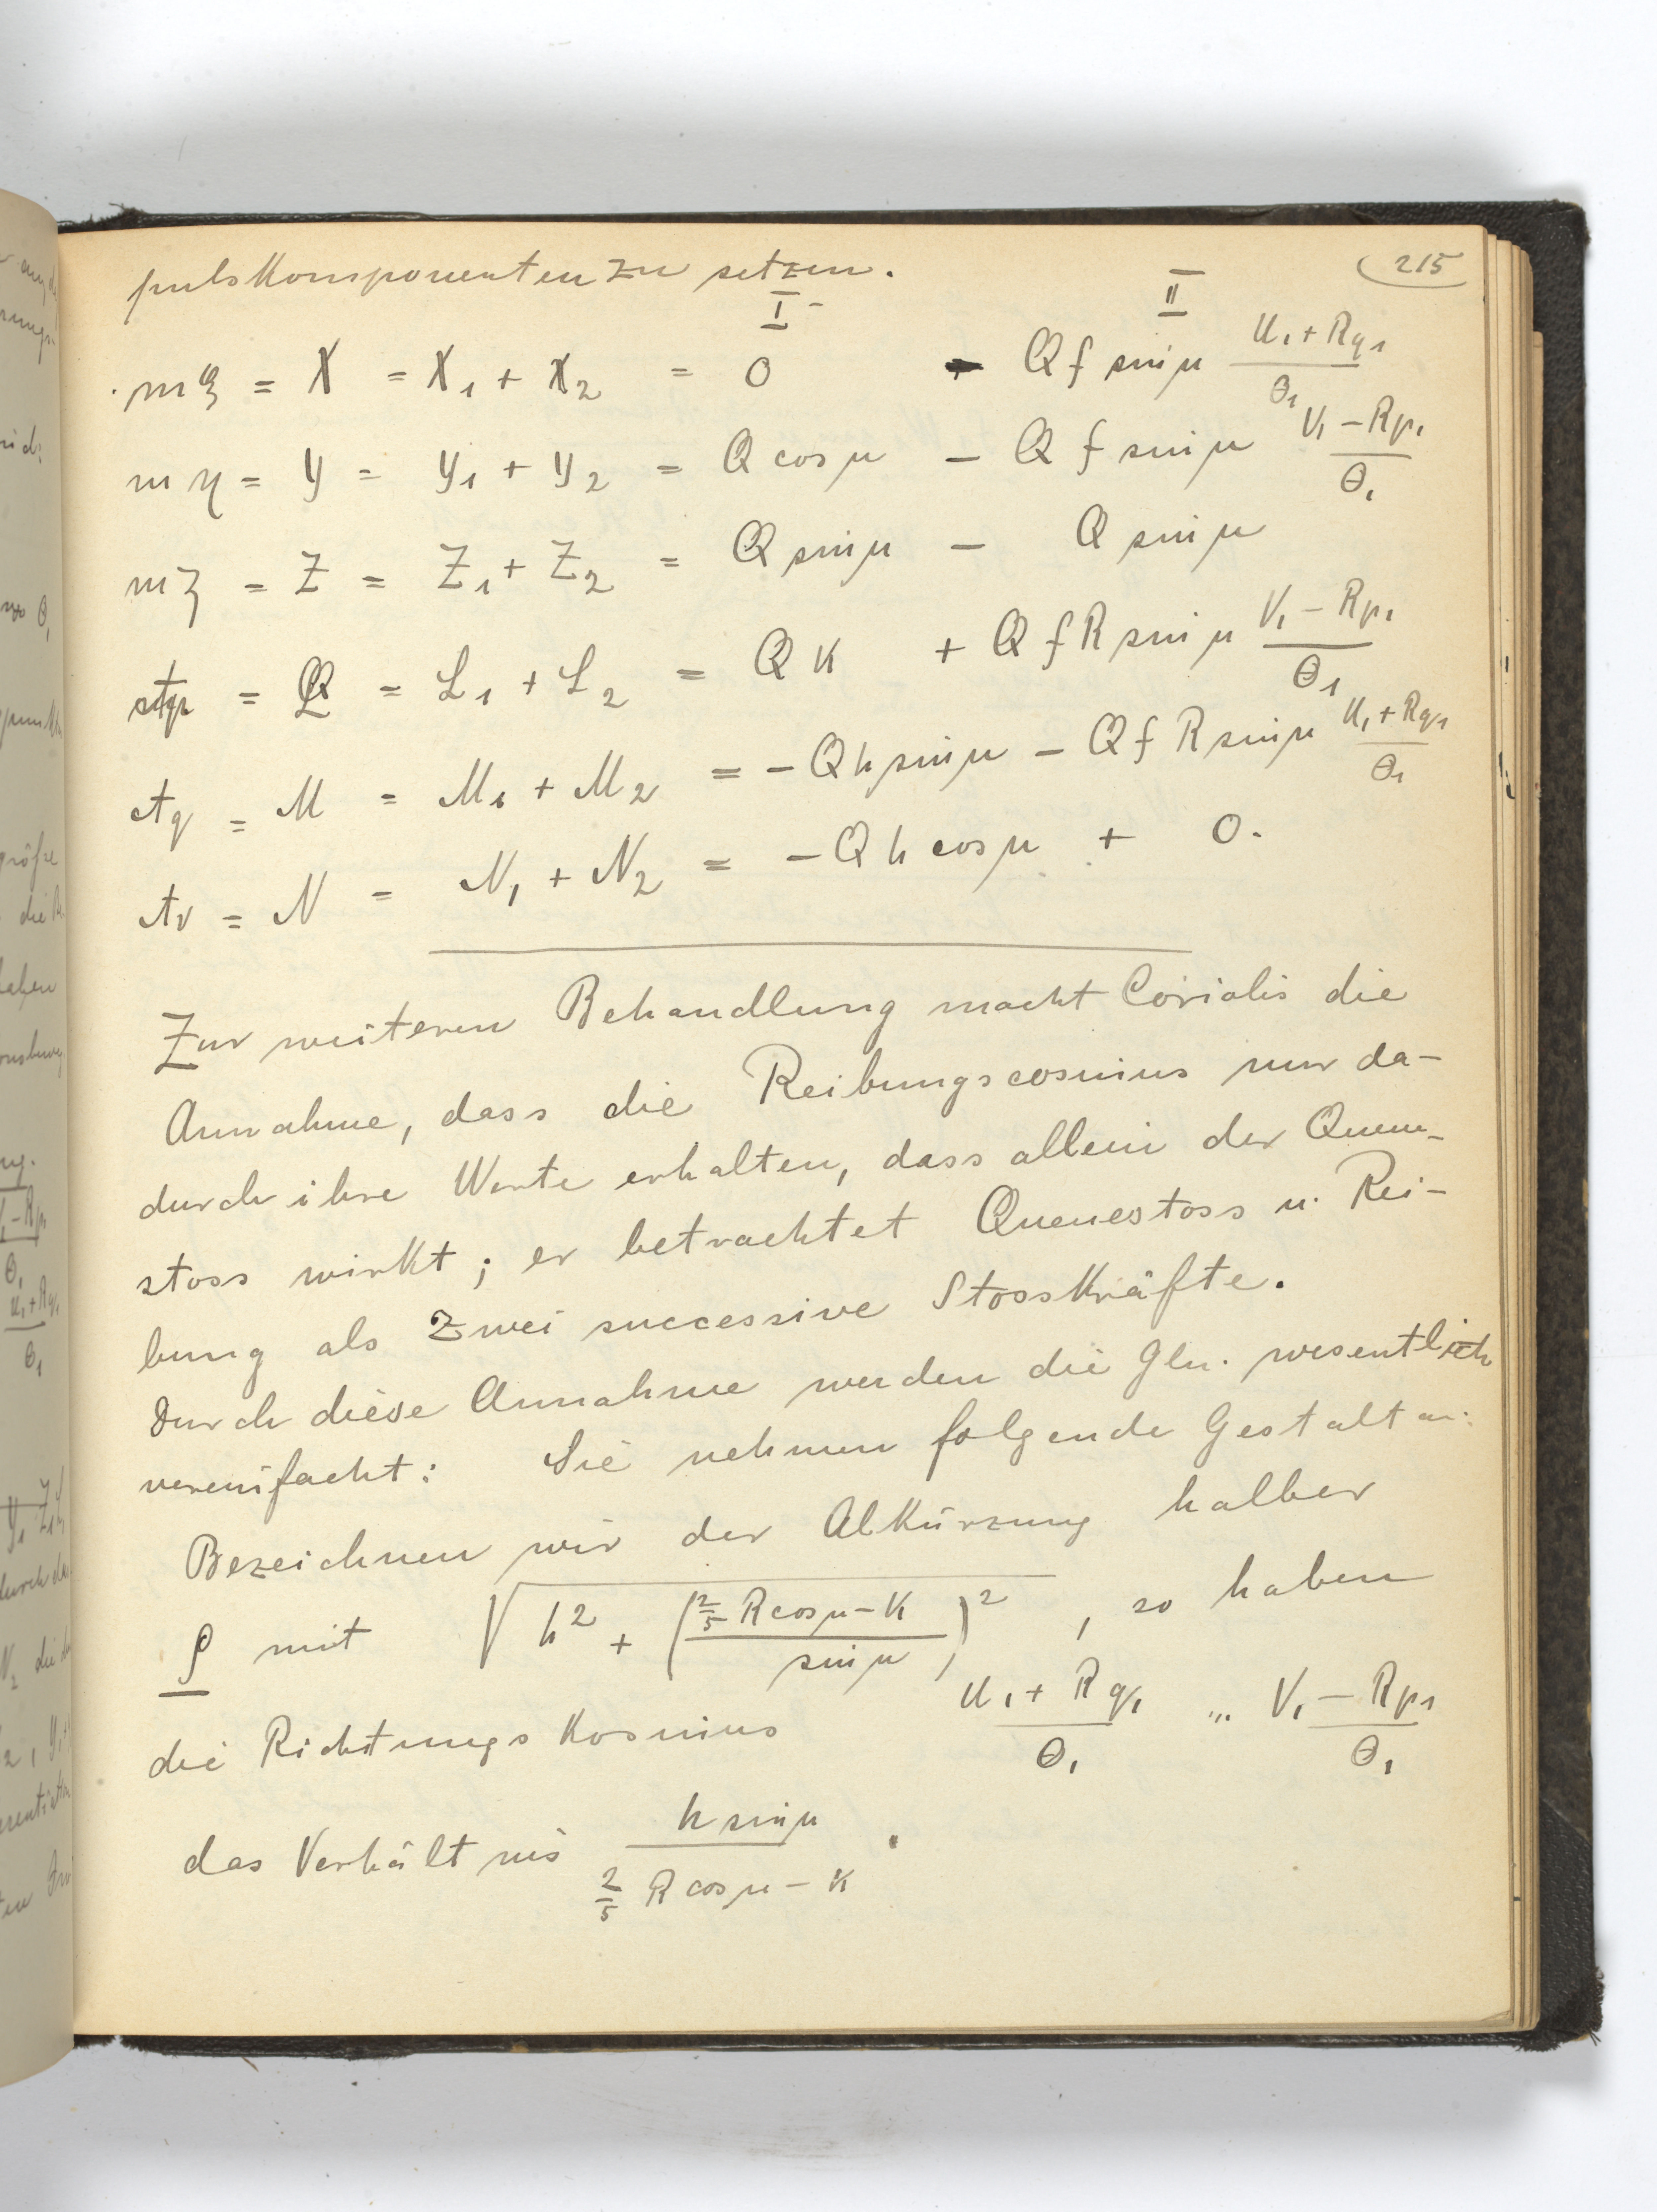 215
pulskomponenten zu setzen.
I II
mξ = X = X₁ + X₂ = 0 - Q f sin μ (U₁ + Rq₁)/Θ₁
mη = Y = Y₁ + Y₂ = Q cos μ - Q f sin μ (V₁ - Rp₁)/Θ₁
mζ = Z = Z₁ + Z₂ = Q sin μ - Q sin μ
Ap = L = L₁ + L₂ = Q K + Q f R sin μ (V₁ - Rp₁)/Θ₁
Aq = M = M₁ + M₂ = - Q h sin μ - Q f R sin μ (U₁ + Rq₁)/Θ₁
Ar = N = N₁ + N₂ = - Q h cos μ + 0.
Zur weiteren Behandlung macht Coriolis die
Annahme, dass die Reibungscosinus nur da-
durch ihre Werte erhalten, dass allein der Queue-
stoss wirkt; er betrachtet Queuestoss u. Rei-
bung als zwei successive Stosskräfte.
Durch diese Annahme werden die Gln. wesentlich
vereinfacht: Sie nehmen folgende Gestalt an:
Bezeichnen wir der Abkürzung halber
ρ mit √(h² + ((2/5 R cos μ - K)/sin μ)²), so haben
die Richtungskosinus (U₁ + Rq₁)/Θ₁ „ (V₁ - Rp₁)/Θ₁
das Verhältnis (h sin μ)/(2/5 R cos μ - K).